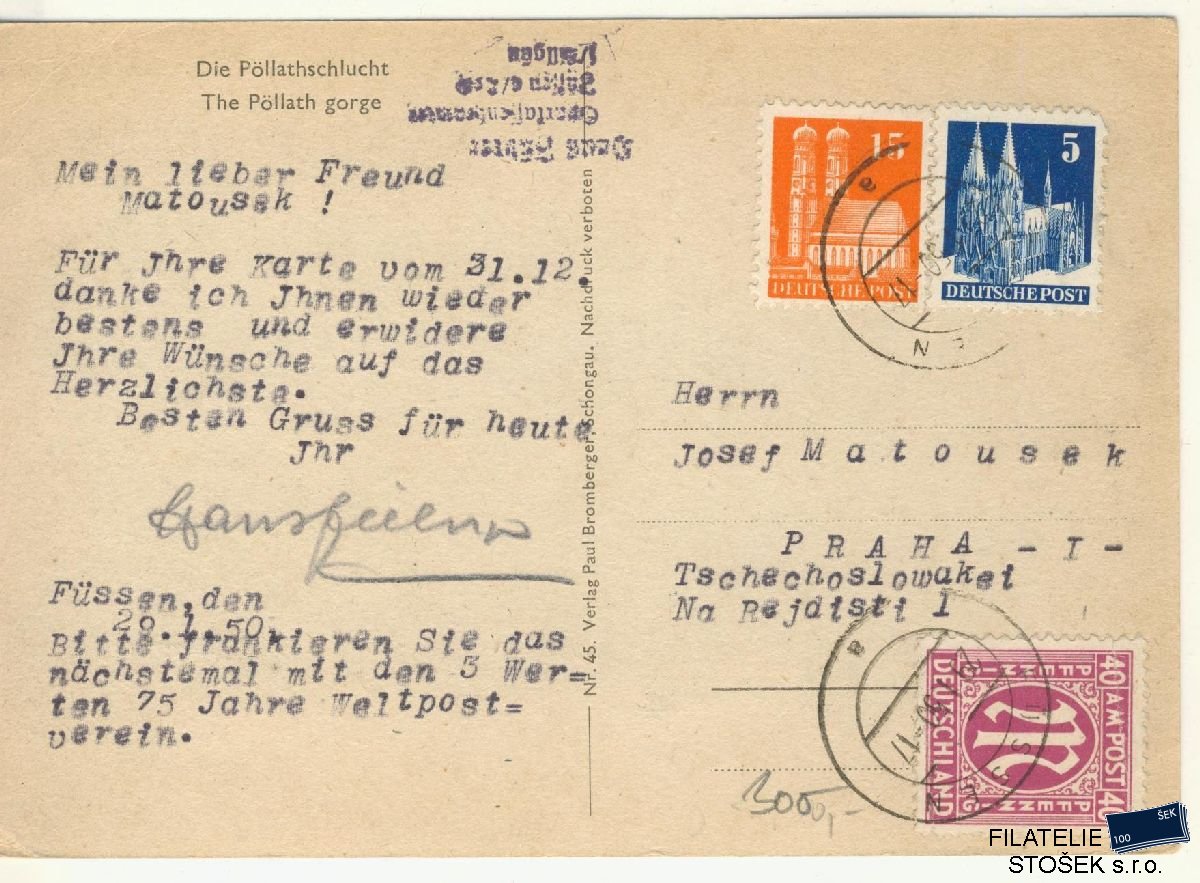 Die Pöllathschlucht
The Pöllath gorge
Mein lieber Freund
Matousek !
Für Jhre Karte vom 31.12.
danke ich Jhnen wieder
bestens und erwidere
Jhre Wünsche auf das
Herzlichste.
Besten Gruss für heute
Jhr
Füssen, den
20.1.50
Bitte frankieren Sie das
nächstemal mit den 3 Wer=
ten 75 Jahre Weltpost=
verein.
Nr. 45. Verlag Paul Bromberger, Schongau. Nachdruck verboten
15
DEUTSCHE POST
5
DEUTSCHE POST
Herrn
Josef Matousek
PRAHA - I -
Tschechoslowakei
Na Rejdisti 1
40 AM POST 40
PFENNIG
PFENNIG
DEUTSCHLAND
M
300,-
100
ŠEK
FILATELIE
STOŠEK s.r.o.